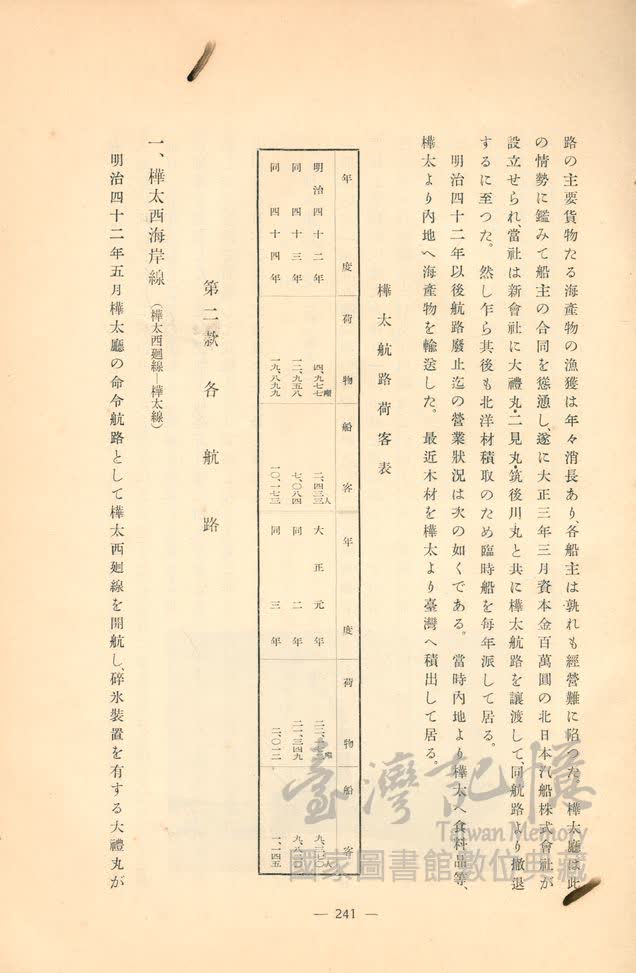 路の主要貨物たる海産物の漁獲は年々消長あり、各船主は孰れも經營難に陷つた。樺太廳は此
の情勢に鑑みて船主の合同を慫慂し、遂に大正三年三月資本金百萬圓の北日本汽船株式會社が
設立せられ、當社は新會社に大禮丸・二見丸・筑後川丸と共に樺太航路を讓渡して、同航路より撤退
するに至つた。然し乍ら其後も北洋材積取のため臨時船を每年派して居る。
明治四十二年以後航路廢止迄の營業狀況は次の如くである。當時內地より樺太へ食料品等、
樺太より內地へ海產物を輸送した。最近木材を樺太より臺灣へ積出して居る。
樺太航路荷客表
年度 荷物 船客 年度 荷物 船客
明治四十二年 四、九七七噸 二、四三三人 大正元年 噸 九、三七〇人
同四十三年 一二、九五八 七、〇八四 同二年 二一、三四九 九、八一〇
同四十四年 一九、八九九 一〇、一七三 同三年 二、〇一二 一、一四五
第二款 各航路
一、樺太西海岸線(樺太西廻線—樺太線)
明治四十二年五月樺太廳の命令航路として樺太西廻線を開航し、碎氷裝置を有する大禮丸が
— 241 —
臺灣記憶
Taiwan Memory
國家圖書館數位典藏